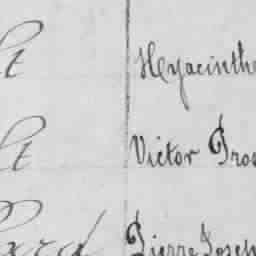 lt Hyacinthe
lt Victor Pros
ard Pierre Joseph